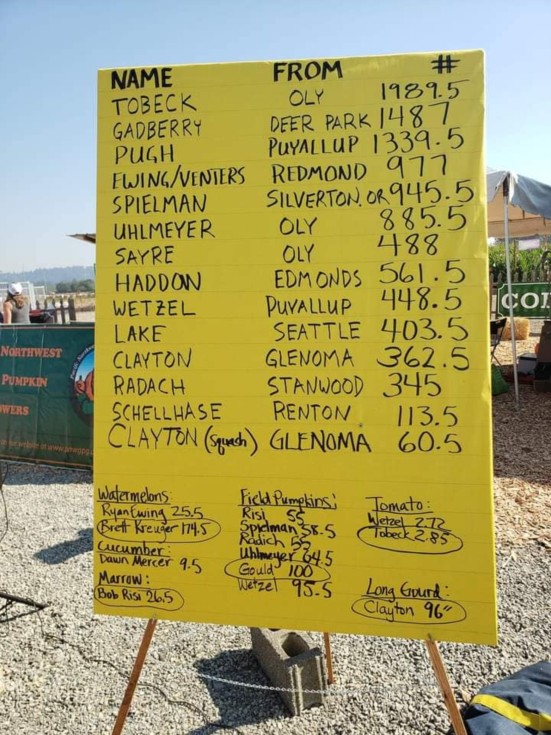 NAME FROM #
TOBECK OLY 1989.5
GADBERRY DEER PARK 1487
PUGH PUYALLUP 1339.5
EWING/VENTERS REDMOND 977
SPIELMAN SILVERTON, OR 945.5
UHLMEYER OLY 885.5
SAYRE OLY 488
HADDON EDMONDS 561.5
WETZEL PUYALLUP 448.5
LAKE SEATTLE 403.5
CLAYTON GLENOMA 362.5
RADACH STANWOOD 345
SCHELLHASE RENTON 113.5
CLAYTON (Squash) GLENOMA 60.5
Watermelons:
Ryan Ewing 25.5
Brett Kreuger 174.5
Cucumber:
Dawn Mercer 9.5
Marrow:
Bob Risi 26.5
Field Pumpkins:
Risi 55
Spielman 58.5
Radich
Uhlmeyer 64.5
Gould 100
Wetzel 95.5
Tomato:
Wetzel 2.72
Tobeck 2.85
Long Gourd:
Clayton 96"
NORTHWEST
PUMPKIN
OWERS
CO